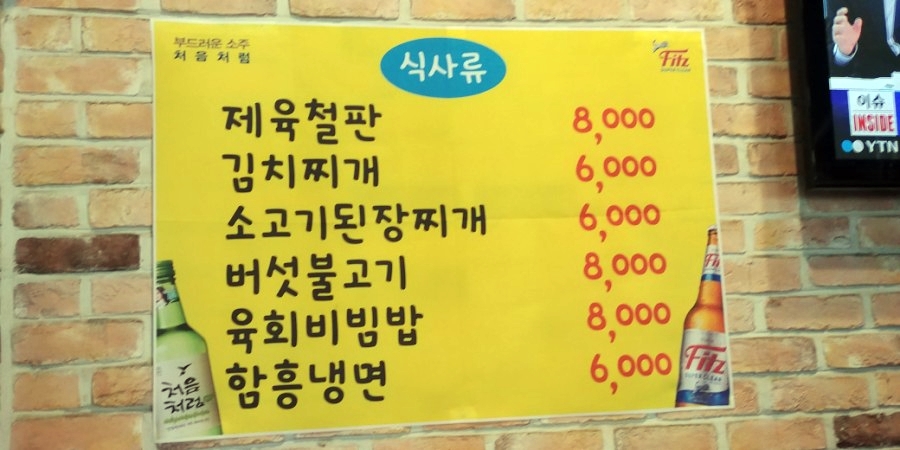 부드러운 소주
처음처럼
식사류
Fitz
SUPER CLEAR
제육철판 8,000
김치찌개 6,000
소고기된장찌개 6,000
버섯불고기 8,000
육회비빔밥 8,000
함흥냉면 6,000
처음
처럼
Fitz
Fitz
SUPER CLEAR
이슈
INSIDE
YTN